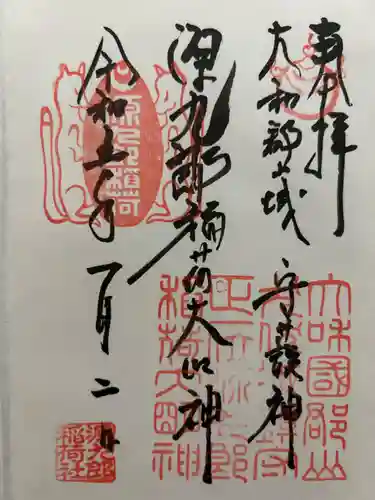 奉拝
大和郡山城 守護神
源九郎稲荷大明神
令和五年 一月二日
源九郎稲荷
大和國郡山
正一位源九郎
稲荷大明神
源九郎
稲荷社